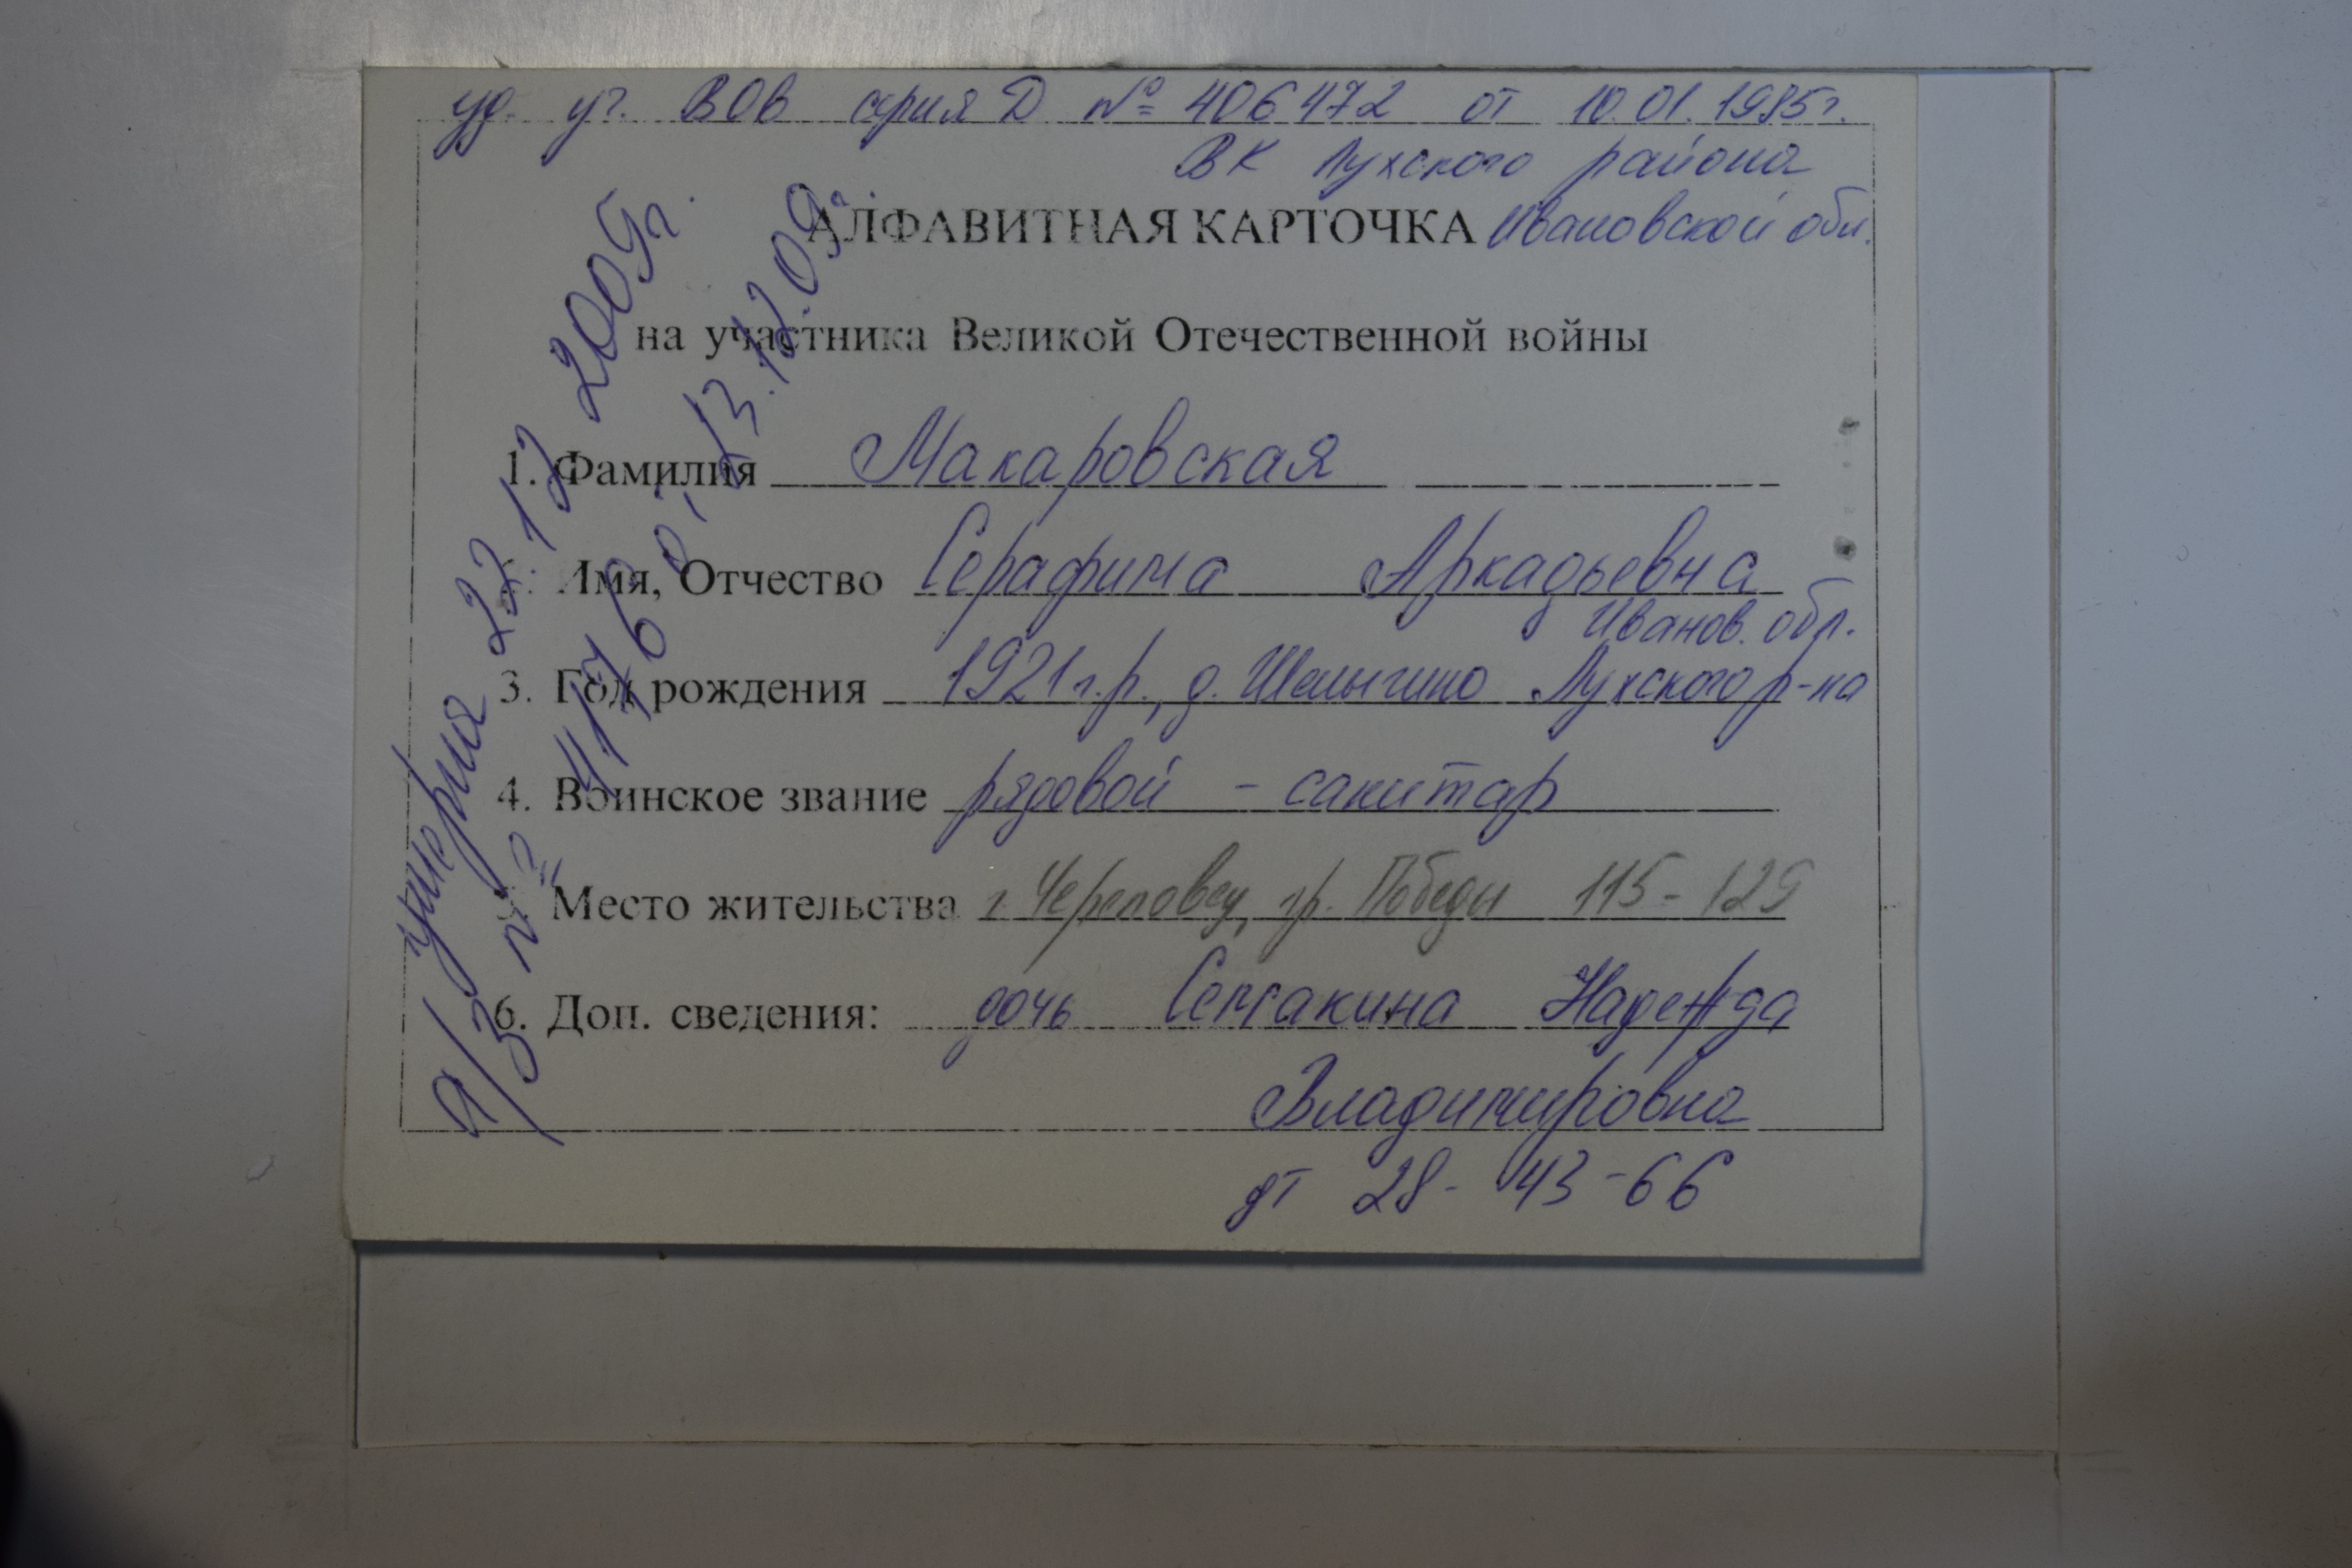 уд. уч. ВОв серия Д № 406472 от 10.01.1985г.
ВК Лухского района
АЛФАВИТНАЯ КАРТОЧКА Ивановской обл.
на участника Великой Отечественной войны
1. Фамилия Макаровская
Имя, Отчество Серафима Аркадьевна
Иванов. обл.
3. Год рождения 1921 г.р., д. Шалыгино Лухского р-на
4. Воинское звание рядовой - санитар
5. Место жительства г. Череповец, пр. Победы 115-129
6. Доп. сведения: дочь Надежда
Владимировна
дт 28-43-66
умерла 22.12 2009г.
а/з № 4176 от 23.12.09г.